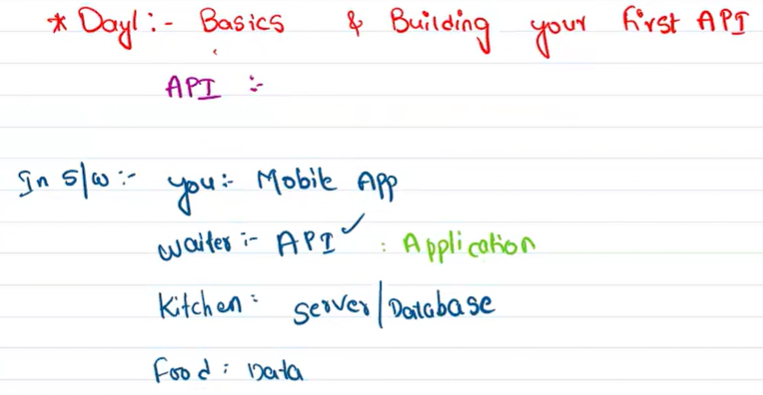 * Day1:- Basics & Building your first API
API :-
In S/W:- you:- Mobile App
Waiter:- API ✓ : Application
Kitchen: Server/Database
Food: Data